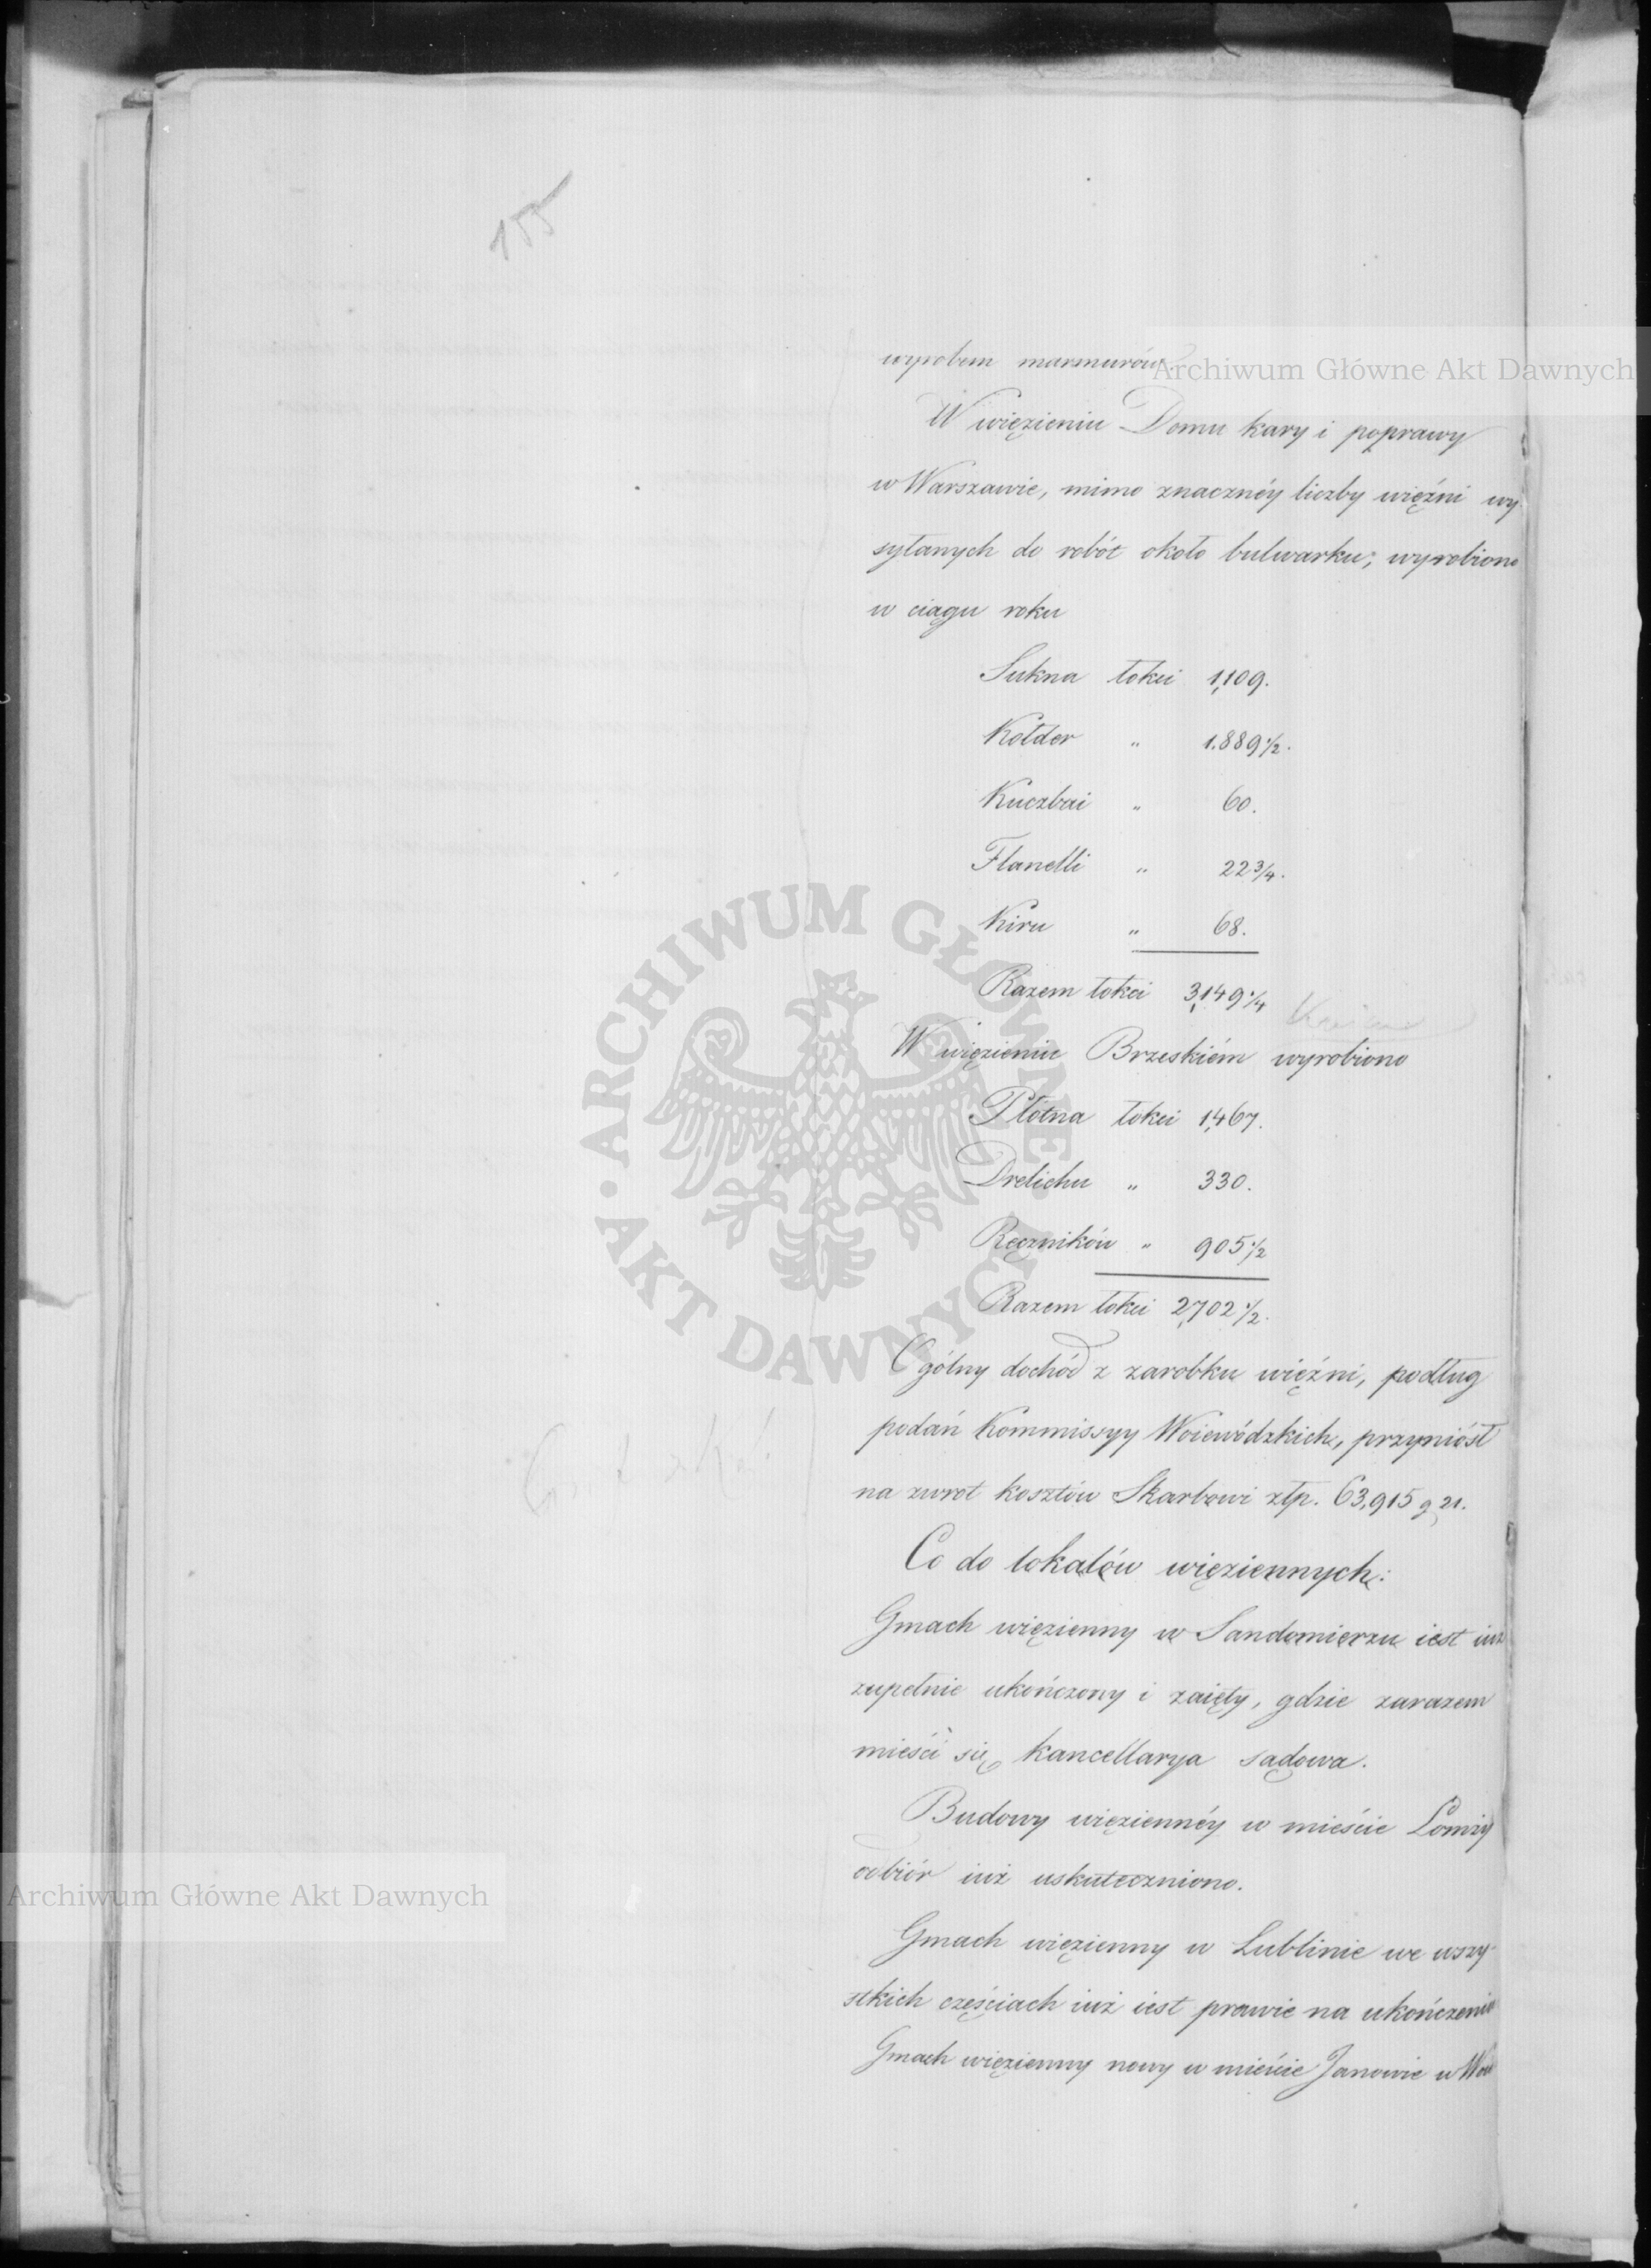 155
wyrobem marmurów.
Archiwum Główne Akt Dawnych
W więzieniu Domu kary i poprawy
w Warszawie, mimo znacznéy liczby więźni wy
syłanych do robót około bulwarku, wyrobiono
w ciągu roku
Sukna łokci 1,109.
Kołder " 1.889 1/2.
Kuczbai " 60.
Flanelli " 22 3/4.
Kiru " 68.
Razem łokci 3,149 1/4
W więzieniu Brzeskiém wyrobiono
Płótna łokci 1,467.
Drelichu " 330.
Ręczników " 905 1/2
Razem łokci 2,702 1/2.
Ogólny dochód z zarobku więźni, podług
podań Kommissyy Woiewódzkich, przyniósł
na zwrot kosztów Skarbowi złp. 63,915 g 21.
Co do lokalów więziennych:
Gmach więzienny w Sandomierzu iest iuż
zupełnie ukończony i zaięty, gdzie zarazem
mieści się kancellarya sądowa.
Budowy więziennéy w mieście Łomży
odbiór iuż uskuteczniono.
Archiwum Główne Akt Dawnych
Gmach więzienny w Lublinie we wszy-
stkich częściach iuż iest prawie na ukończeniu
Gmach więzienny nowy w mieście Janowie w
ARCHIWUM GŁÓWNE
AKT DAWNYCH